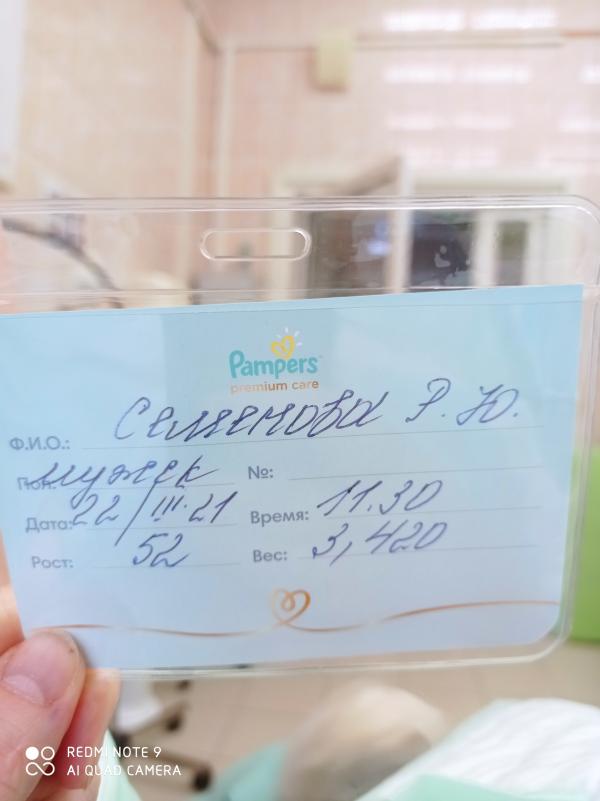 Pampers
premium care
Ф.И.О.: Семенова Р. Ю.
Пол: мужск №:
Дата: 22/III.21 Время: 11.30
Рост: 52 Вес: 3,420
REDMI NOTE 9
AI QUAD CAMERA